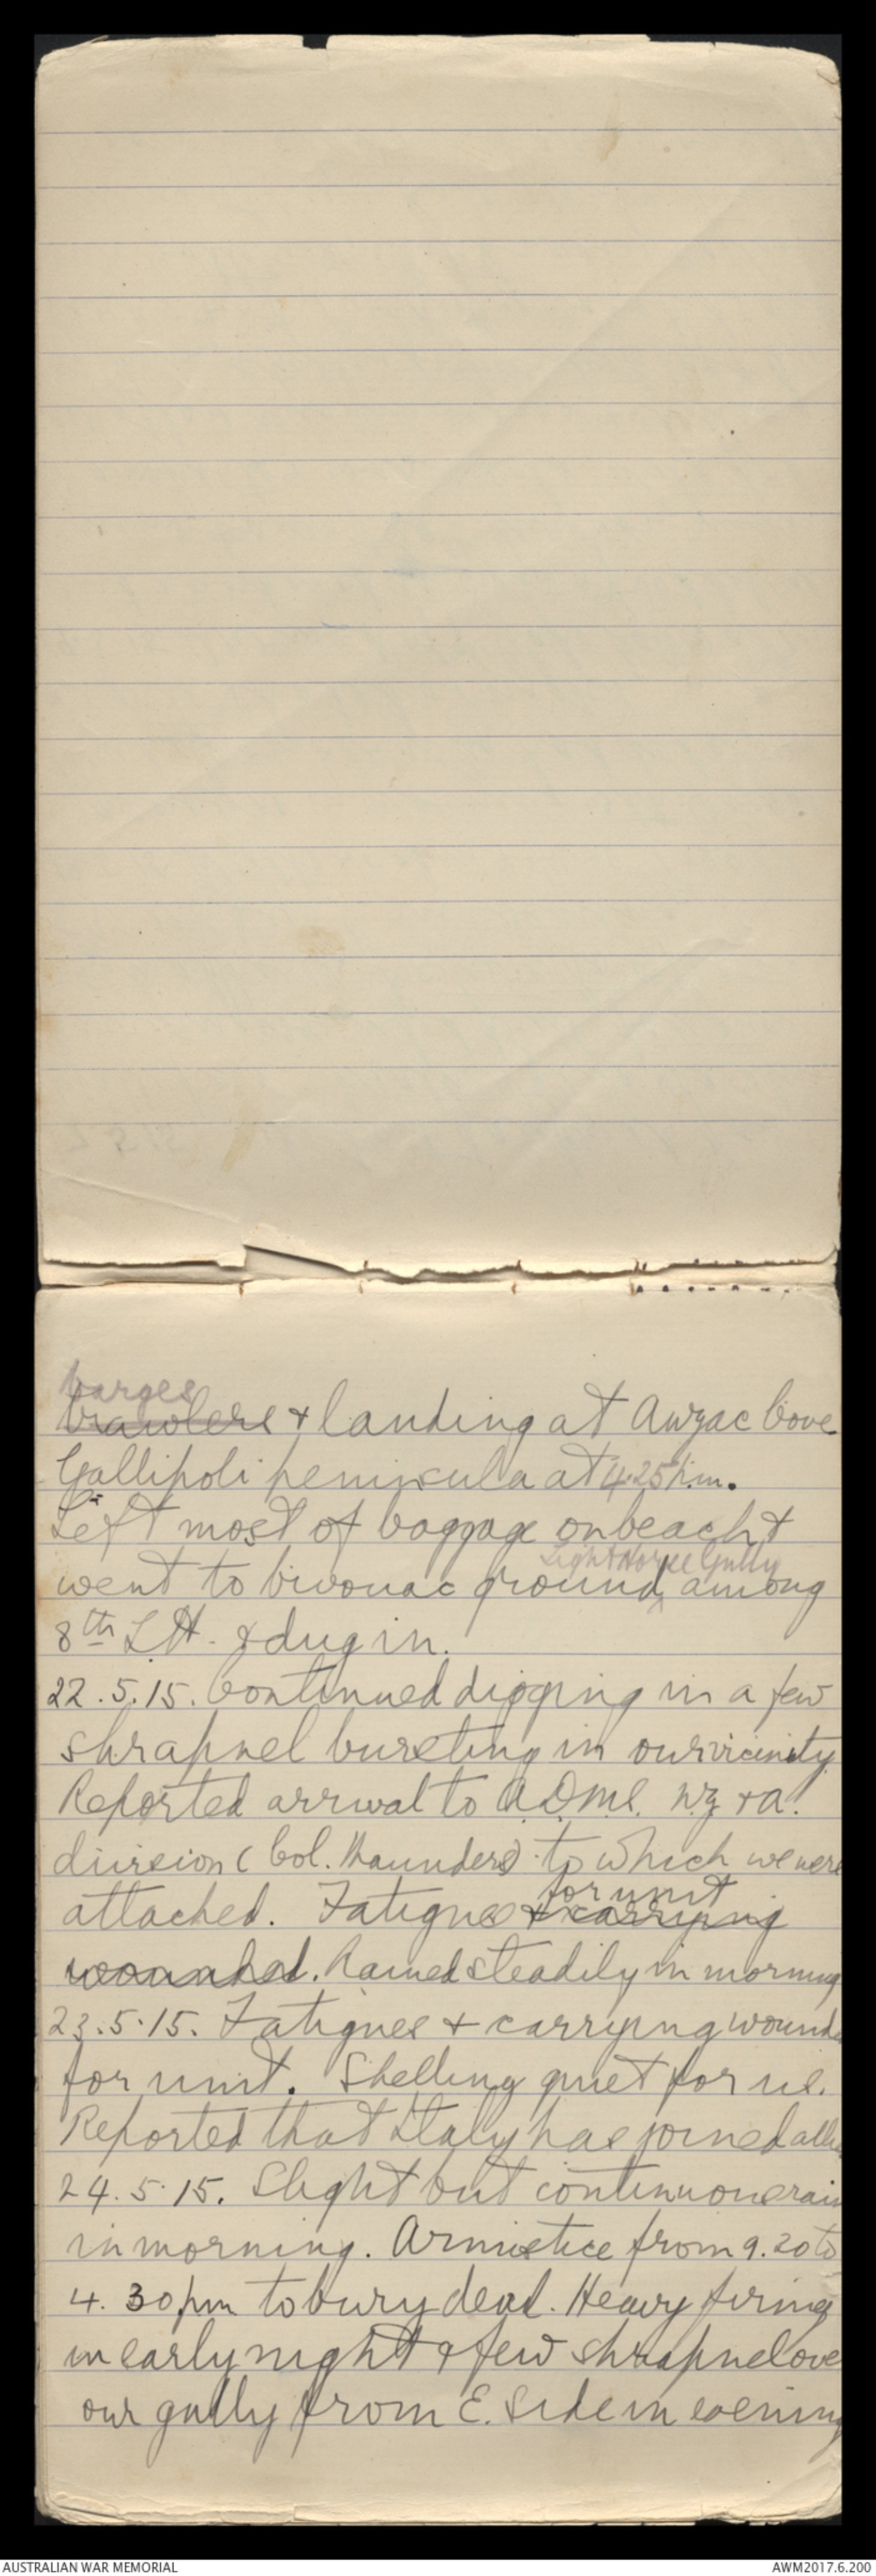 barges
trawlers & landing at Anzac Cove
Gallipoli peninsula at 4.25 p.m.
Left most of baggage on beach &
Light Horse Gully
went to bivouac ground ^ among
8th L.H. & dug in.
22.5.15. Continued digging in a few
shrapnel bursting in our vicinity
Reported arrival to A.D.M.S. N.Z & A.
division (Col. Maunders) to which we were
attached. Fatigues & carrying
for unit
wounded. Rained steadily in morning
23.5.15. Fatigues & carrying wounde
for unit. Shelling quiet for us.
Reported that Italy has joined allie
24.5.15. Slight but continuous rain
in morning. Armistice from 9.20 to
4.30 pm to bury dead. Heavy firing
in early night & few shrapnel ove
our gully from E. Side in evening
AUSTRALIAN WAR MEMORIAL
AWM2017.6.200